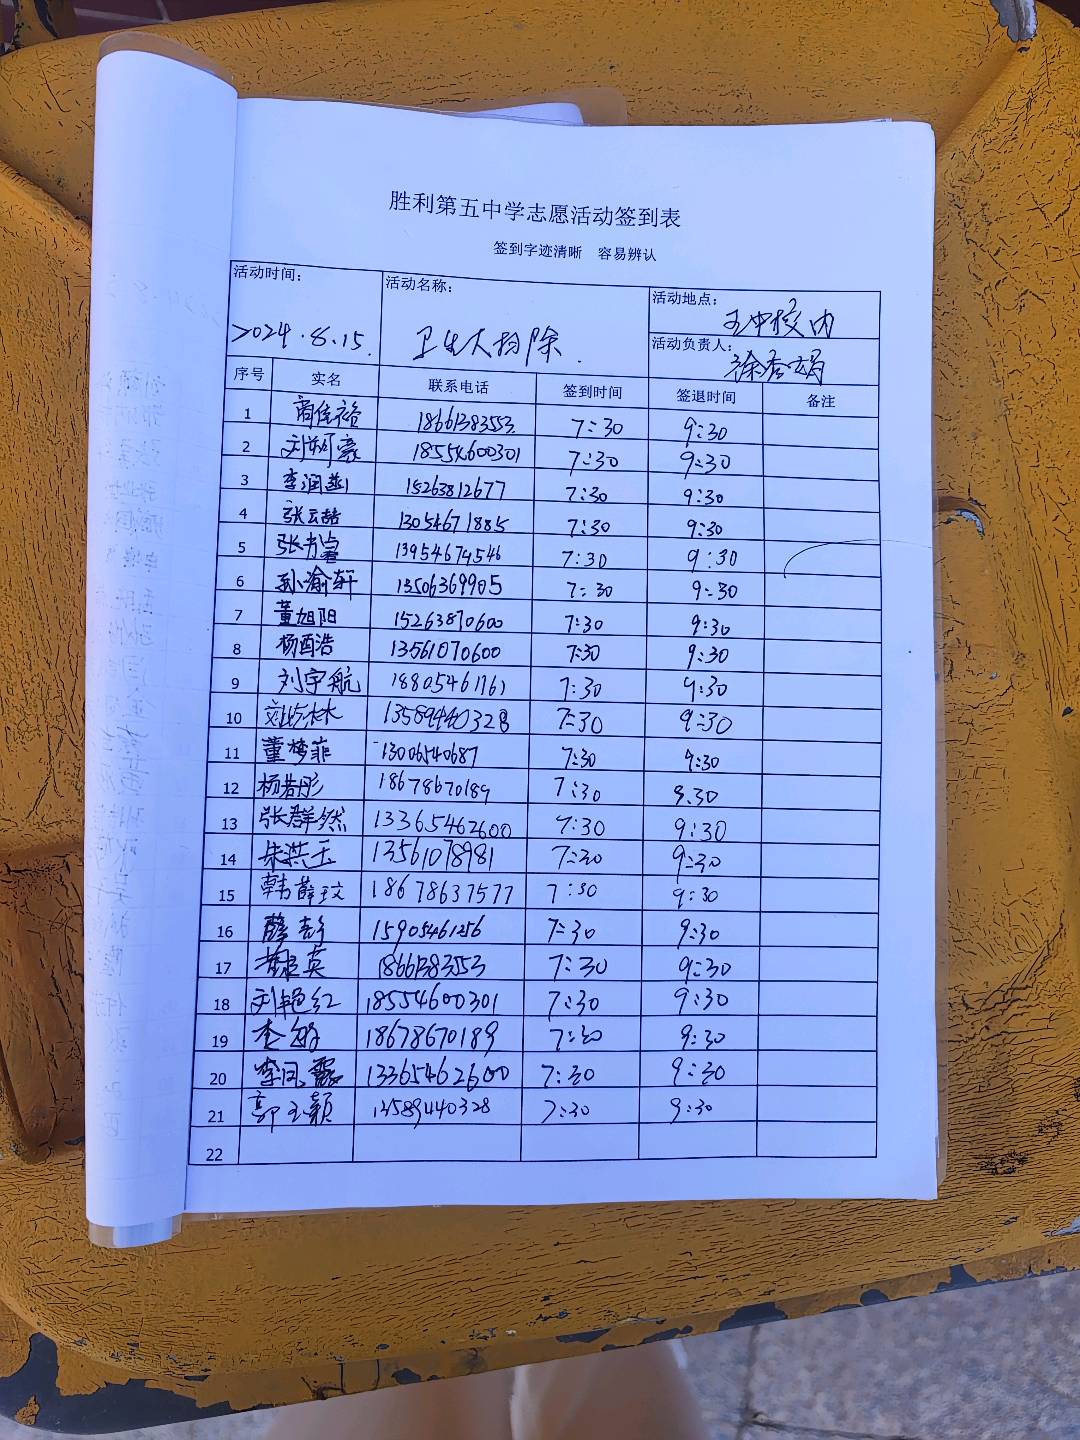 胜利第五中学志愿活动签到表
签到字迹清晰 容易辨认
活动时间： 活动名称： 活动地点： 五中校内
2024.8.15. 卫生大扫除. 活动负责人： 徐秀娟
序号 实名 联系电话 签到时间 签退时间 备注
1 商佳裕 18661383553 7:30 9:30
2 刘轲豪 18554600301 7:30 9:30
3 李润 15263812677 7:30 9:30
4 张云喆 13054671885 7:30 9:30
5 张书 13954674546 7:30 9:30
6 孙渝轩 13506369905 7:30 9:30
7 董旭阳 15263870600 7:30 9:30
8 杨酉浩 13561070600 7:30 9:30
9 刘宇航 18805461761 7:30 9:30
10 13589440328 7:30 9:30
11 董梦菲 13006540687 7:30 9:30
12 杨若彤 18678670189 7:30 9:30
13 张群然 13365462600 7:30 9:30
14 朱洪玉 13561078981 7:30 9:30
15 韩薛玟 18678637577 7:30 9:30
16 薛彭 15905461256 7:30 9:30
17 英 18661383553 7:30 9:30
18 刘艳红 18554600301 7:30 9:30
19 李 18678670189 7:30 9:30
20 李凤霞 13365462600 7:30 9:30
21 郭玉颖 13589440328 7:30 9:30
22